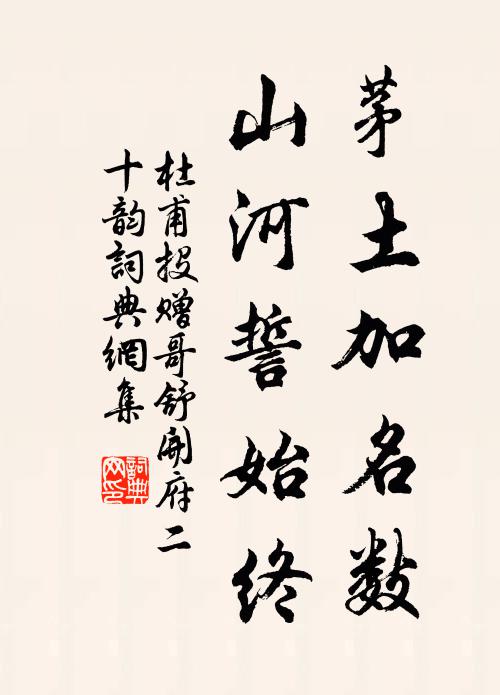 茅土加名数
山河誓始终
杜甫投赠哥舒开府二
十韵詞典網集
詞典
网印